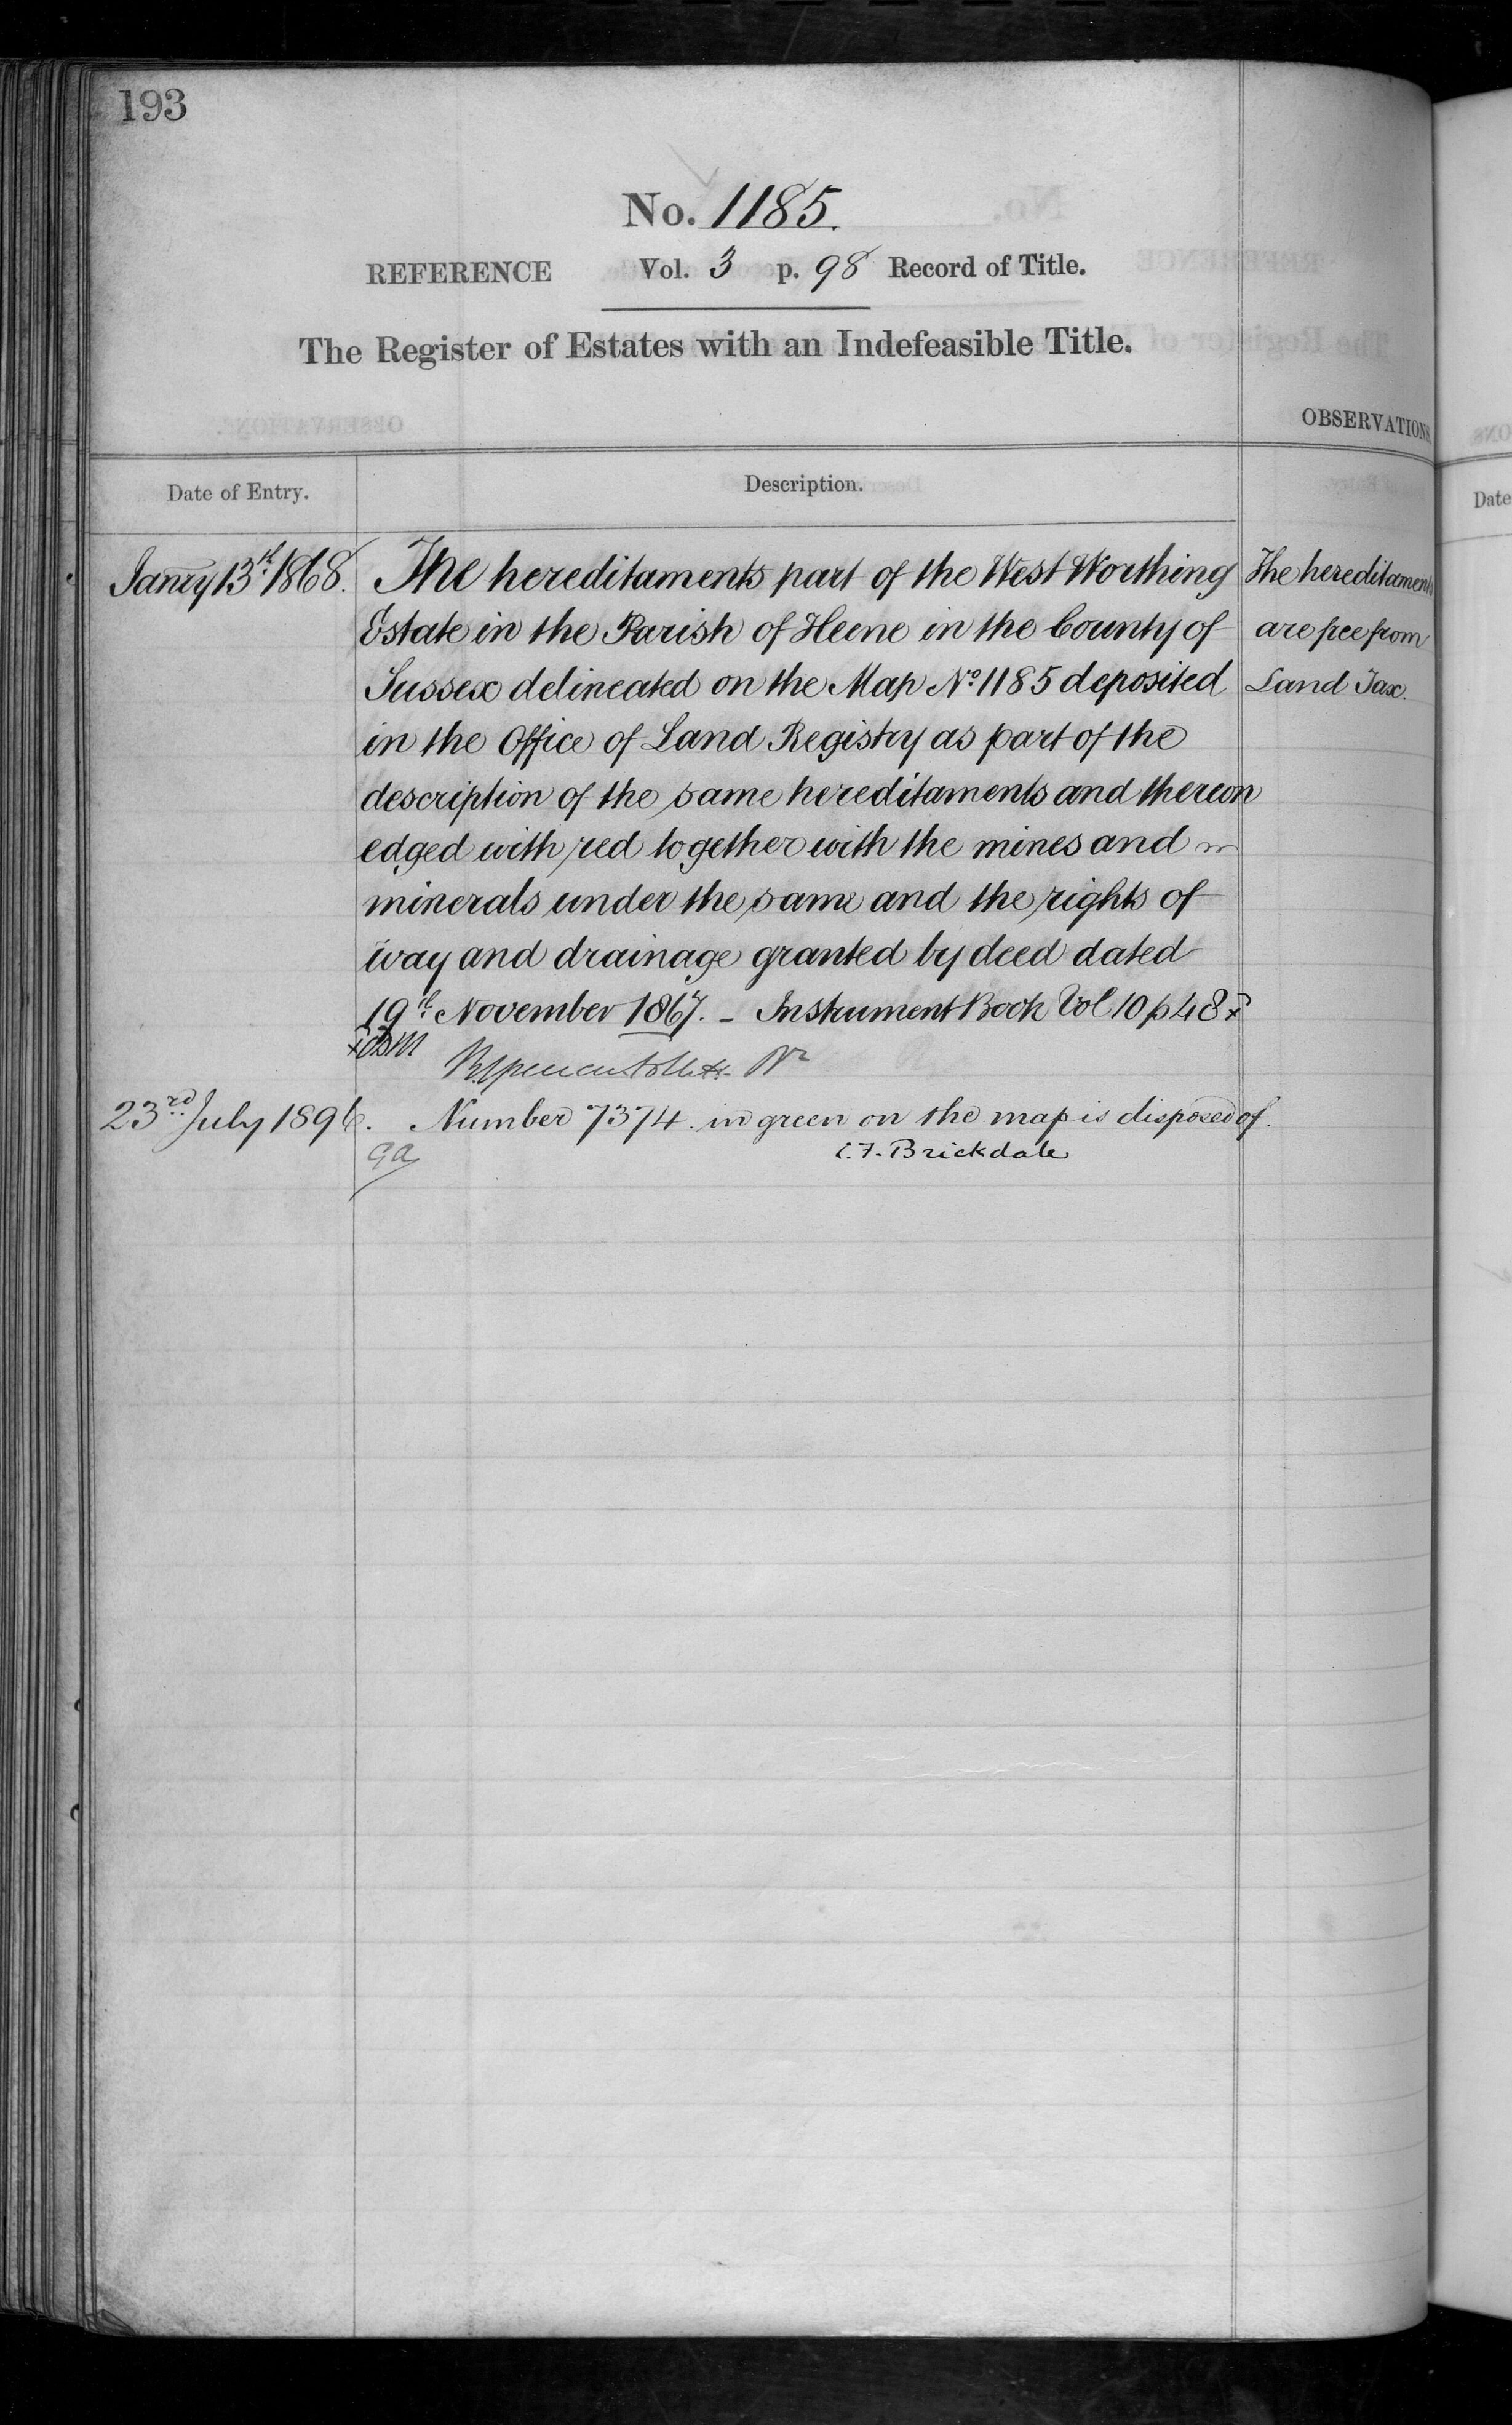 193
No. 1185.
REFERENCE Vol. 3 p. 98 Record of Title.
The Register of Estates with an Indefeasible Title.
OBSERVATIONS.
Date of Entry.
Description.
Date
Janry 13th 1868.
The hereditaments part of the West Worthing
Estate in the Parish of Heene in the County of
Sussex delineated on the Map No. 1185 deposited
in the Office of Land Registry as part of the
description of the same hereditaments and thereon
edged with red together with the mines and
minerals under the same and the rights of
way and drainage granted by deed dated
19th November 1867. – Instrument Book Vol 10 p 48
The hereditaments
are free from
Land Tax.
23rd July 1896. Number 7374 in green on the map is disposed of.
C. F. Brickdale